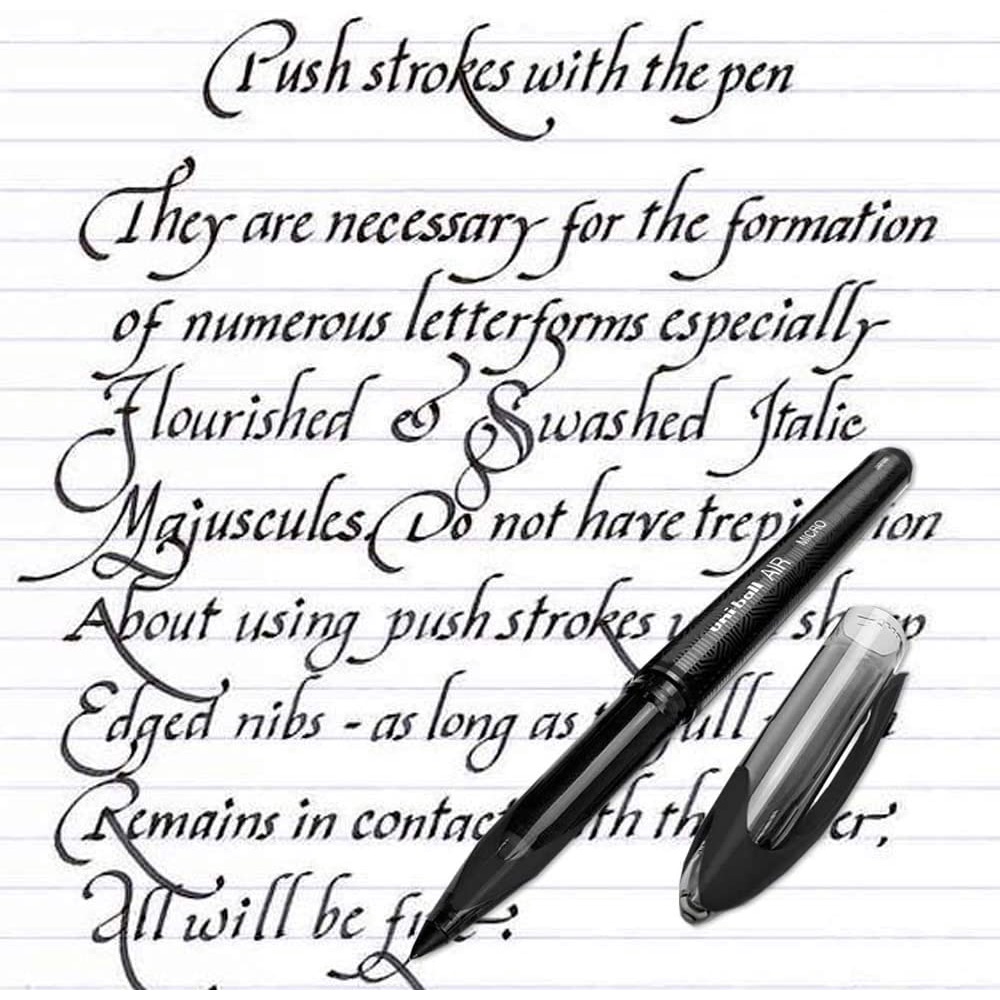 Push strokes with the pen
They are necessary for the formation
of numerous letterforms especially
Flourished & Swashed Italic
Majuscules. Do not have trepi ion
About using push strokes
Edged nibs - as long as full
Remains in contact the
All will be
uni-ball AIR MICRO